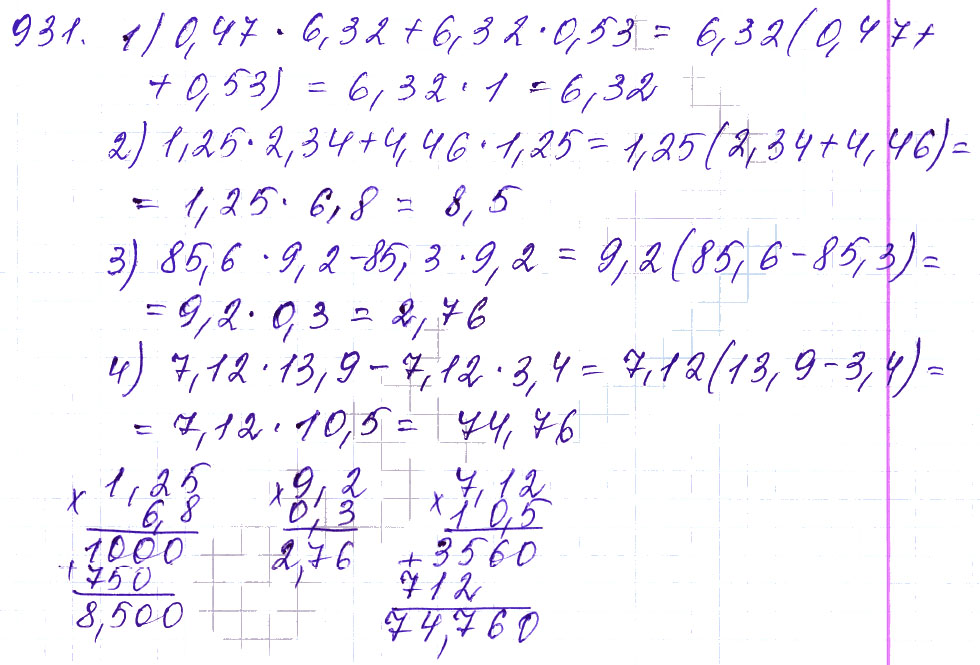 931. 1) 0,47 · 6,32 + 6,32 · 0,53 = 6,32(0,47+
+ 0,53) = 6,32 · 1 = 6,32
2) 1,25 · 2,34 + 4,46 · 1,25 = 1,25(2,34+4,46) =
= 1,25 · 6,8 = 8,5
3) 85,6 · 9,2 - 85,3 · 9,2 = 9,2(85,6 - 85,3) =
= 9,2 · 0,3 = 2,76
4) 7,12 · 13,9 - 7,12 · 3,4 = 7,12(13,9 - 3,4) =
= 7,12 · 10,5 = 74,76
x 1,25
6,8
1000
+ 750
8,500
x 9,2
0,3
2,76
x 7,12
10,5
+ 3560
712
74,760